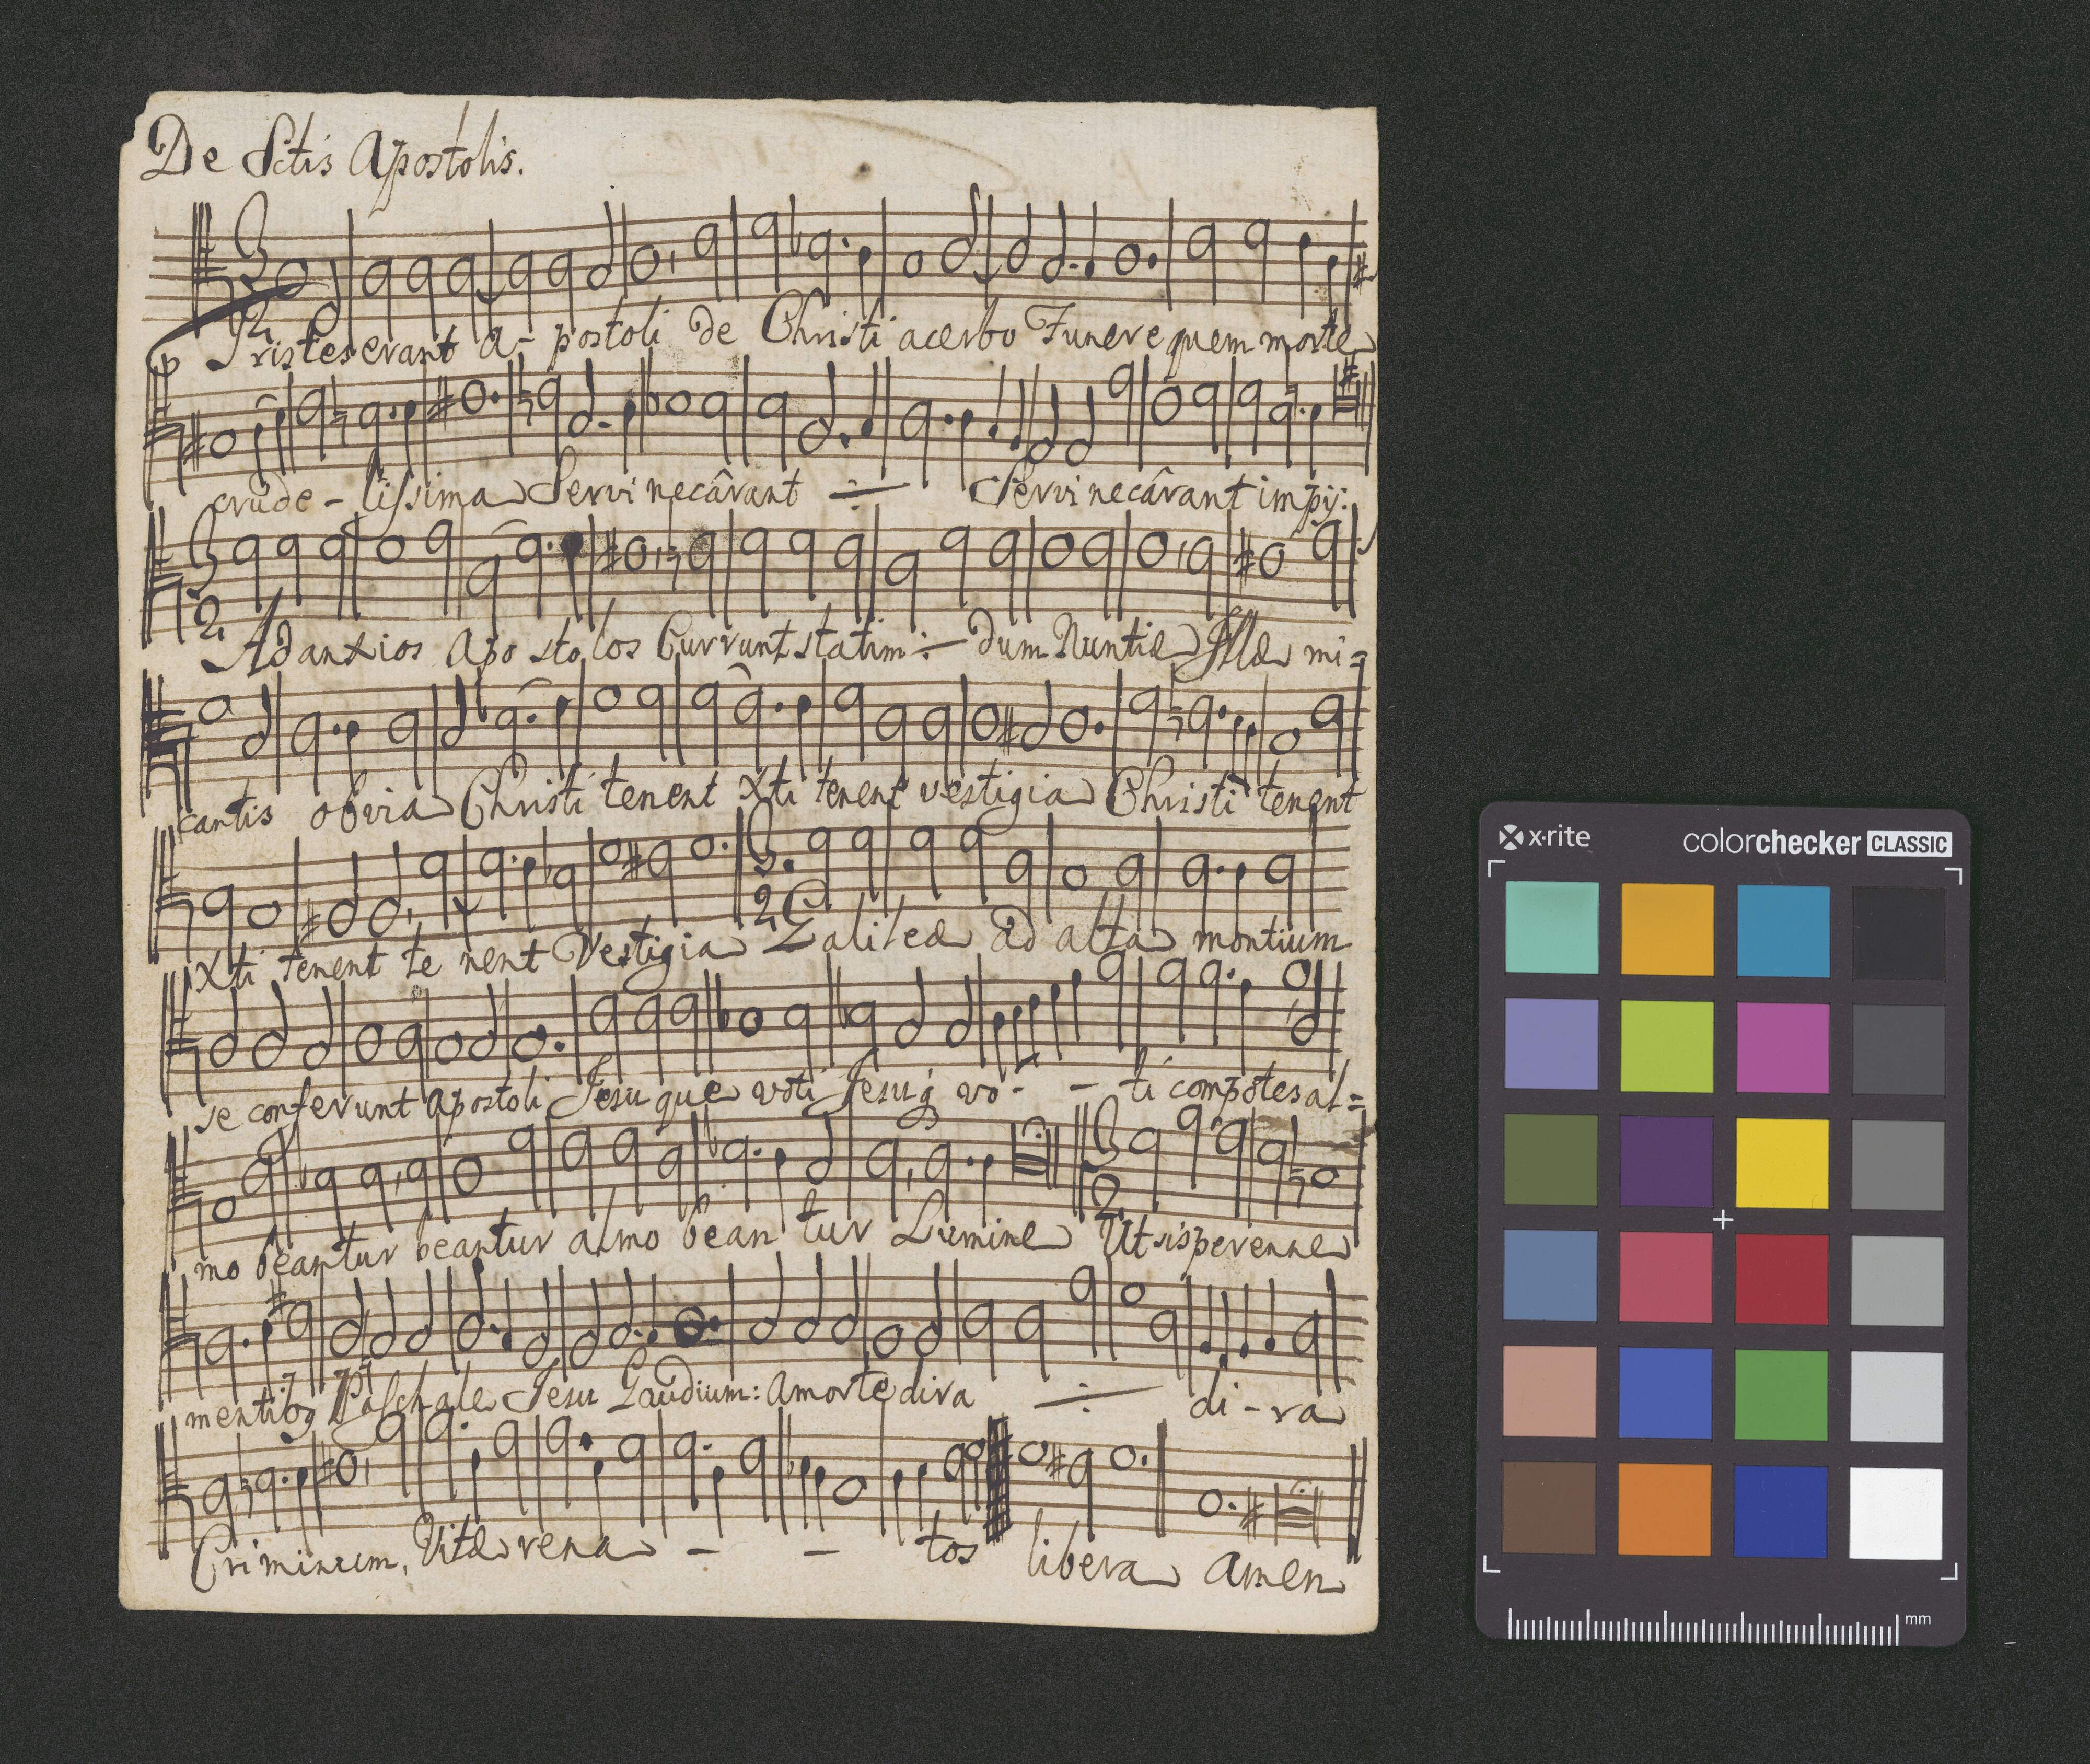 De Sctis Apostolis.
Tristes erant a- postoli de Christi acerbo Funere quem morte
crude - lissima Servi necârant ÷ Servi necârant impij:
Ad anxios Apo sto los Currunt statim ÷ dum Nuntiæ Illæ mi=
cantis obvia Christi tenent Xti tenent vestigia Christi tenent
Xti tenent te nent Vestigia Galileæ ad alta montium
se conferunt Apostoli Jesuque voti Jesuq vo- - ti compotes al=
mo beantur beantur almo bean tur Lumine Ut sis perenne
mentibq Paschale Jesu Gaudium: a morte dira ÷ di - ra
Criminum, Vitæ rena - - tos libera amen
x·rite colorchecker CLASSIC
mm